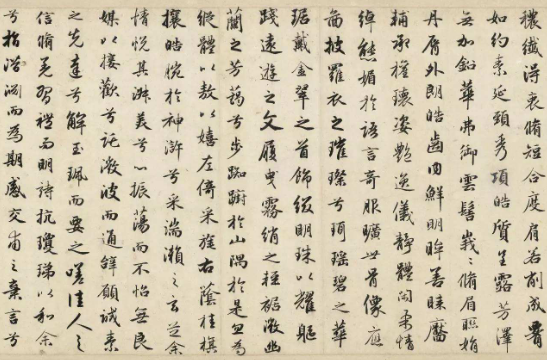 穠纖得衷脩短合度肩若削成䙅
如約素延頸秀項皓質呈露芳澤
無加鉛華弗御雲髻峩〻脩眉聯娟
丹脣外朗皓齒內鮮明眸善睞靨
輔承權瓌姿艷逸儀靜體閑柔情
綽態媚於語言奇服曠世骨像應
圖披羅衣之璀璨兮珥瑤碧之華
琚戴金翠之首飾綴明珠以耀軀
踐遠遊之文履曳霧綃之輕裾微幽
蘭之芳藹兮步踟躕於山隅於是忽焉
縱體以敖以嬉左倚采旄右蔭桂旗
攘皓腕於神滸兮采湍瀨之玄芝余
情悅其淑美兮心振蕩而不怡無良
媒以接歡兮託微波而通辭願誠素
之先達兮解玉珮而要之嗟佳人之
信脩羌習禮而明詩抗瓊珶以和余
兮指潛淵而為期感交甫之棄言兮